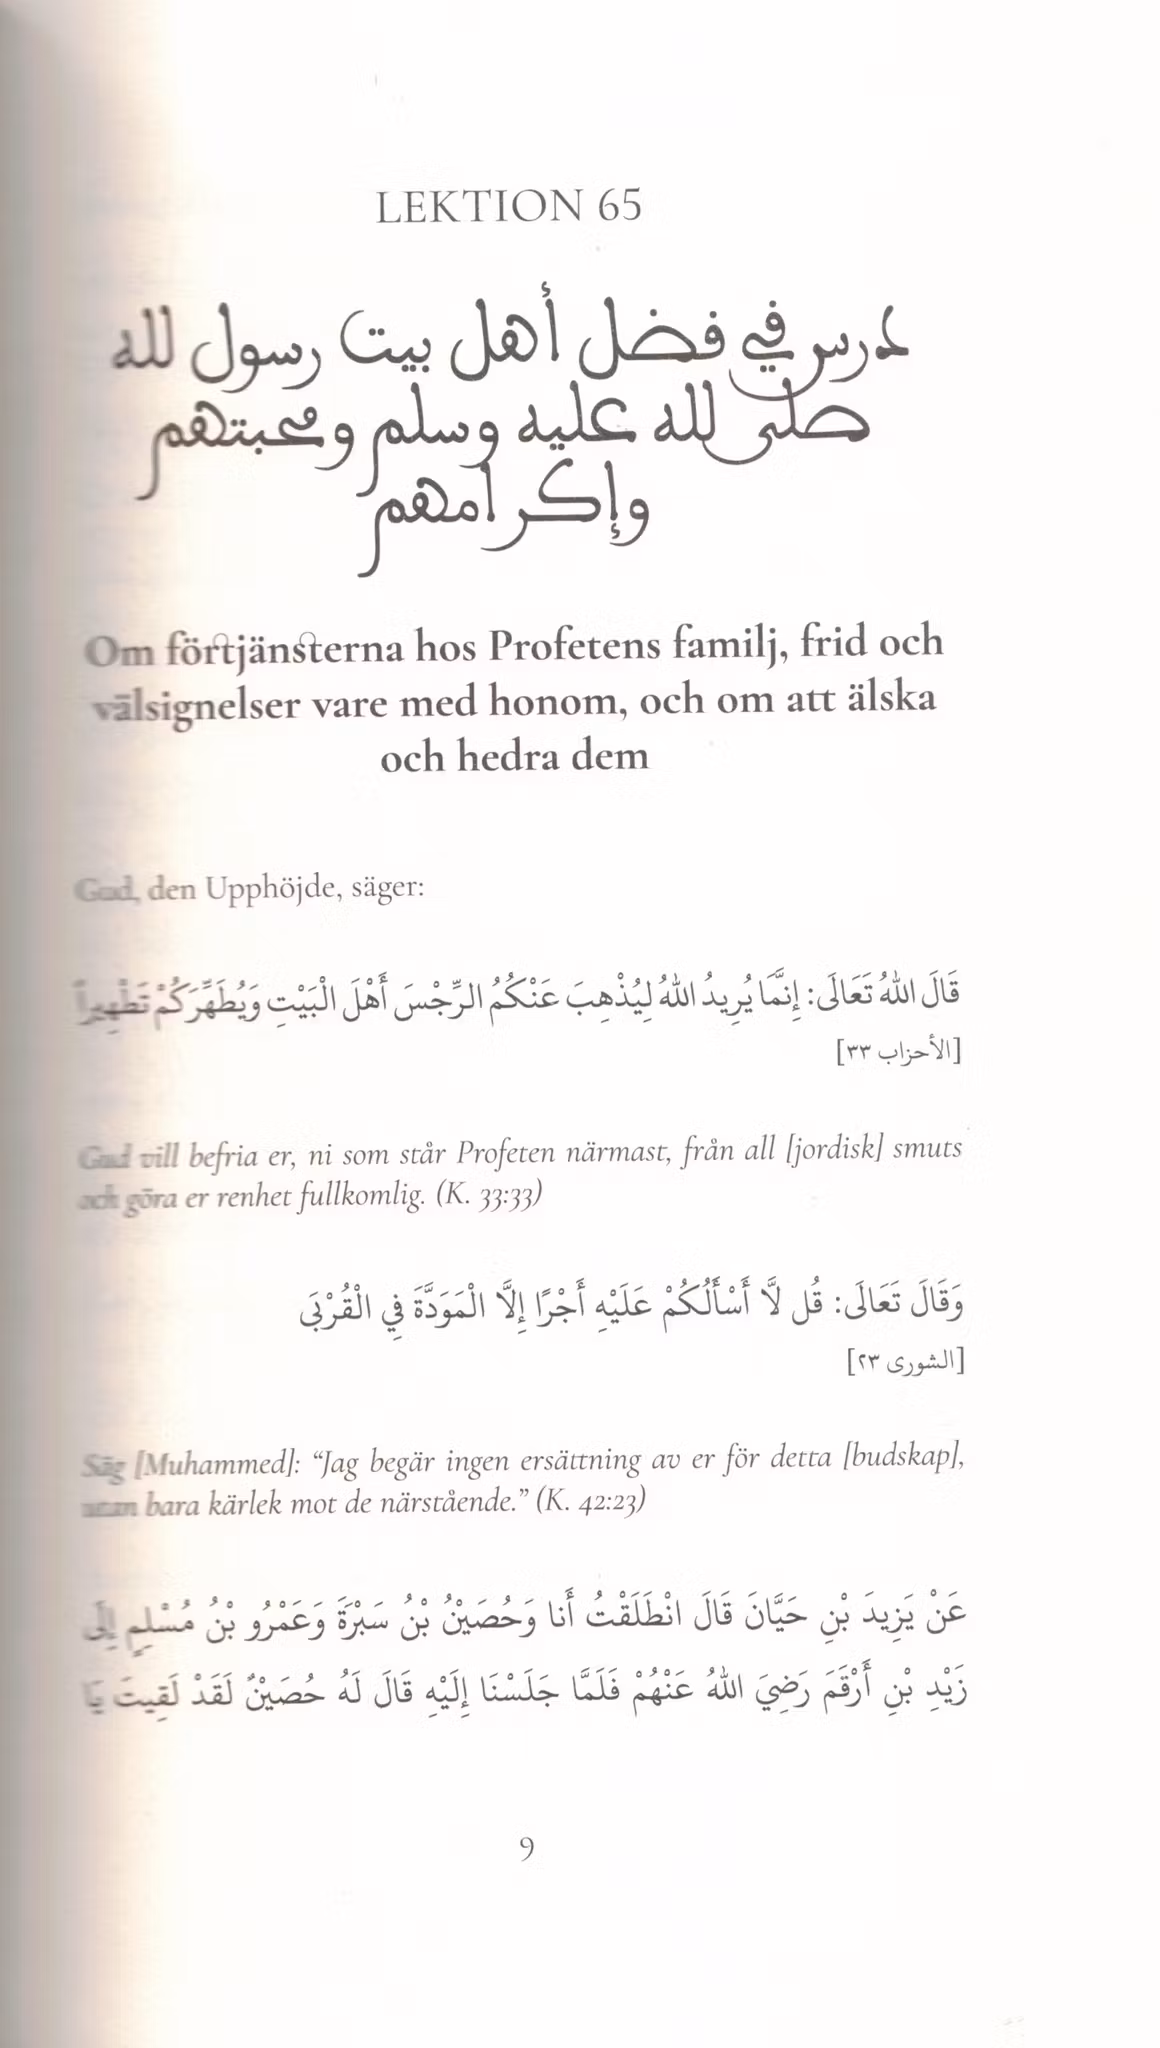 LEKTION 65
درس في فضل أهل بيت رسول لله
صلى لله عليه وسلم ومحبتهم
وإكرامهم
Om förtjänsterna hos Profetens familj, frid och
välsignelser vare med honom, och om att älska
och hedra dem
Gud, den Upphöjde, säger:
قَالَ اللهُ تَعَالَى: إِنَّمَا يُرِيدُ اللهُ لِيُذْهِبَ عَنْكُمُ الرِّجْسَ أَهْلَ الْبَيْتِ وَيُطَهِّرَكُمْ تَطْهِيراً
[الأحزاب ٣٣]
Gud vill befria er, ni som står Profeten närmast, från all [jordisk] smuts
och göra er renhet fullkomlig. (K. 33:33)
وَقَالَ تَعَالَى: قُل لَّا أَسْأَلُكُمْ عَلَيْهِ أَجْرًا إِلَّا الْمَوَدَّةَ فِي الْقُرْبَى
[الشورى ٢٣]
Säg [Muhammed]: “Jag begär ingen ersättning av er för detta [budskap],
utan bara kärlek mot de närstående.” (K. 42:23)
عَنْ يَزِيدَ بْنِ حَيَّانَ قَالَ انْطَلَقْتُ أَنا وَحُصَيْنُ بْنُ سَبْرَةَ وَعَمْرُو بْنُ مُسْلِمٍ إِلَى
زَيْدِ بْنِ أَرْقَمَ رَضِيَ اللهُ عَنْهُمْ فَلَمَّا جَلَسْنَا إِلَيْهِ قَالَ لَهُ حُصَيْنٌ لَقَدْ لَقِيتَ يَا
9